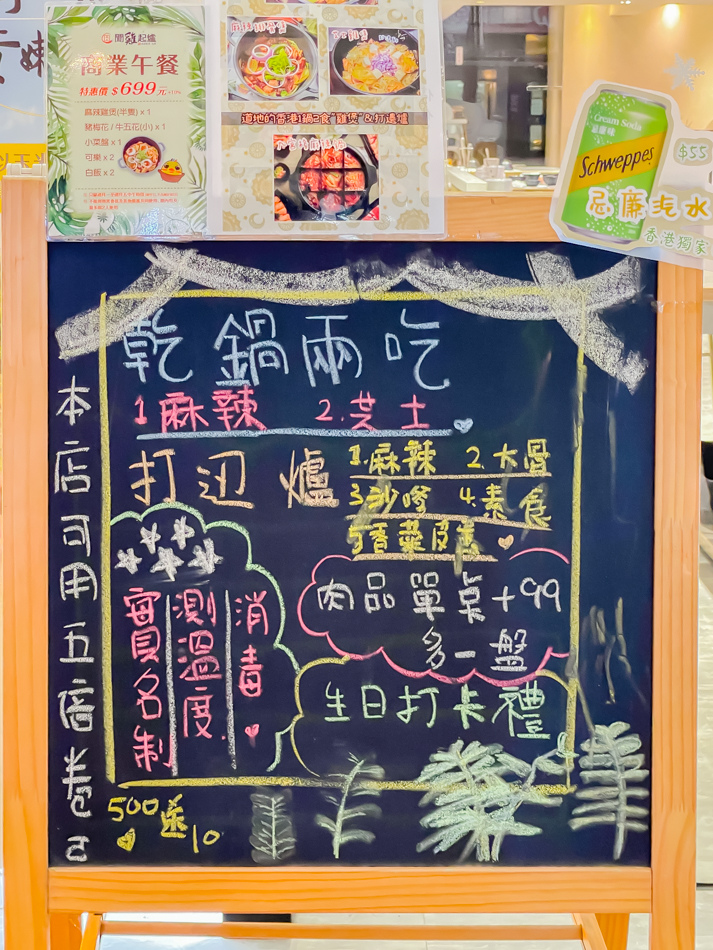 聞雞起爐
商業午餐
特惠價 $699元+10%
麻辣雞煲(半隻) x 1
豬梅花 / 牛五花(小) x 1
小菜盤 x 1
可樂 x 2
白飯 x 2
道地的香港1鍋2食"雞煲"&打邊爐
Cream Soda
忌廉味
Schweppes
$55
忌廉汽水
香港獨家
乾鍋兩吃
1麻辣 2.芝士
打边爐
1.麻辣 2.大骨
3沙嗲 4.素食
5香菜皮蛋
肉品單桌+99
多一盤
生日打卡禮
實名制
測溫度
消毒
本店可用五倍卷
500送10